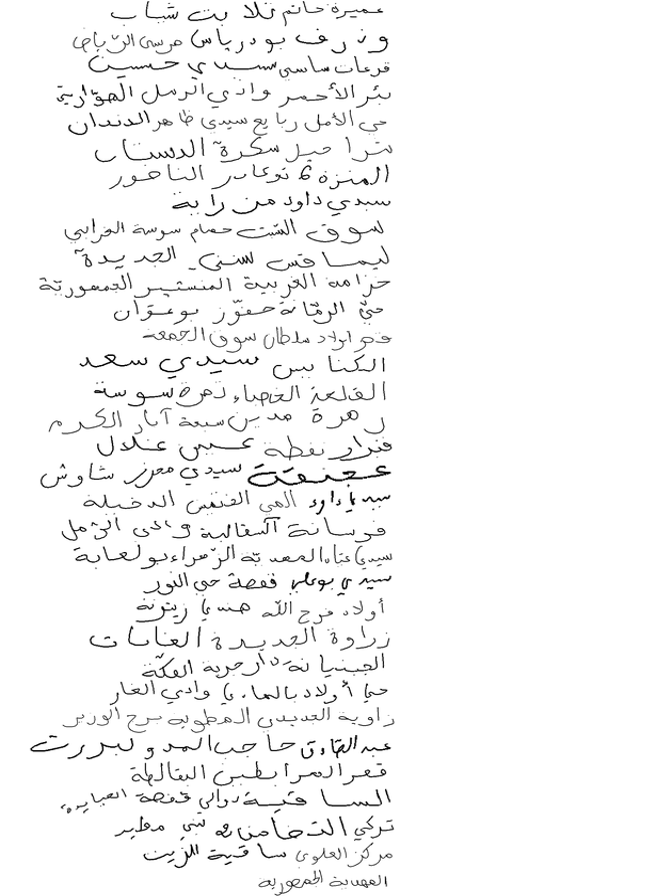 عميرة حاتم تلابت شباب
وذرف بودرياس مرسى الرياض
قرعات ساسي سيدي حسين
بئر الأحمر وادي الرمل الهوارية
حي الأمل ربايع سيدي ظاهر الدندان
سكرة الدستاب
المنزه 6 الناظور
سيدي داود من راية
سوق السبت حمام سوسة الخرايب
ليماقس سنى الجديدة
حزامة الغربية المنستير الجمهورية
حي الرمانة حفوز بوعوان
قصر اولاد سلطان سوق الجمعة
الكنايس سيدي سعد
القلعة الخصباء نمرة سوسة
زهرة مدين سبعة آبار الكرم
فندار نفطة عين غلال
عجنقة سيدي محرز شاوش
سيدي داود الحي الدخيلة
فرسانة السقالبة وادي الرمل
سيدي المهدية الزهراء بولعابة
سيدي بوعلي قفصة حي النور
أولاد فرح الله هنشير زيتونة
زراوة الجديدة الغابات
الجبنيانة دار جربة العكة
حي أولاد بالهادي وادي الغار
زاوية الجديدي المطوية برج الوزير
عبد الصادق حاجب
قصر المرابطين البقالطة
الساقية دوالي قفصة العبايدة
تركي التضامن 2 بني مطير
مركز العلوي ساقية الزيت
المهدية الجمهورية